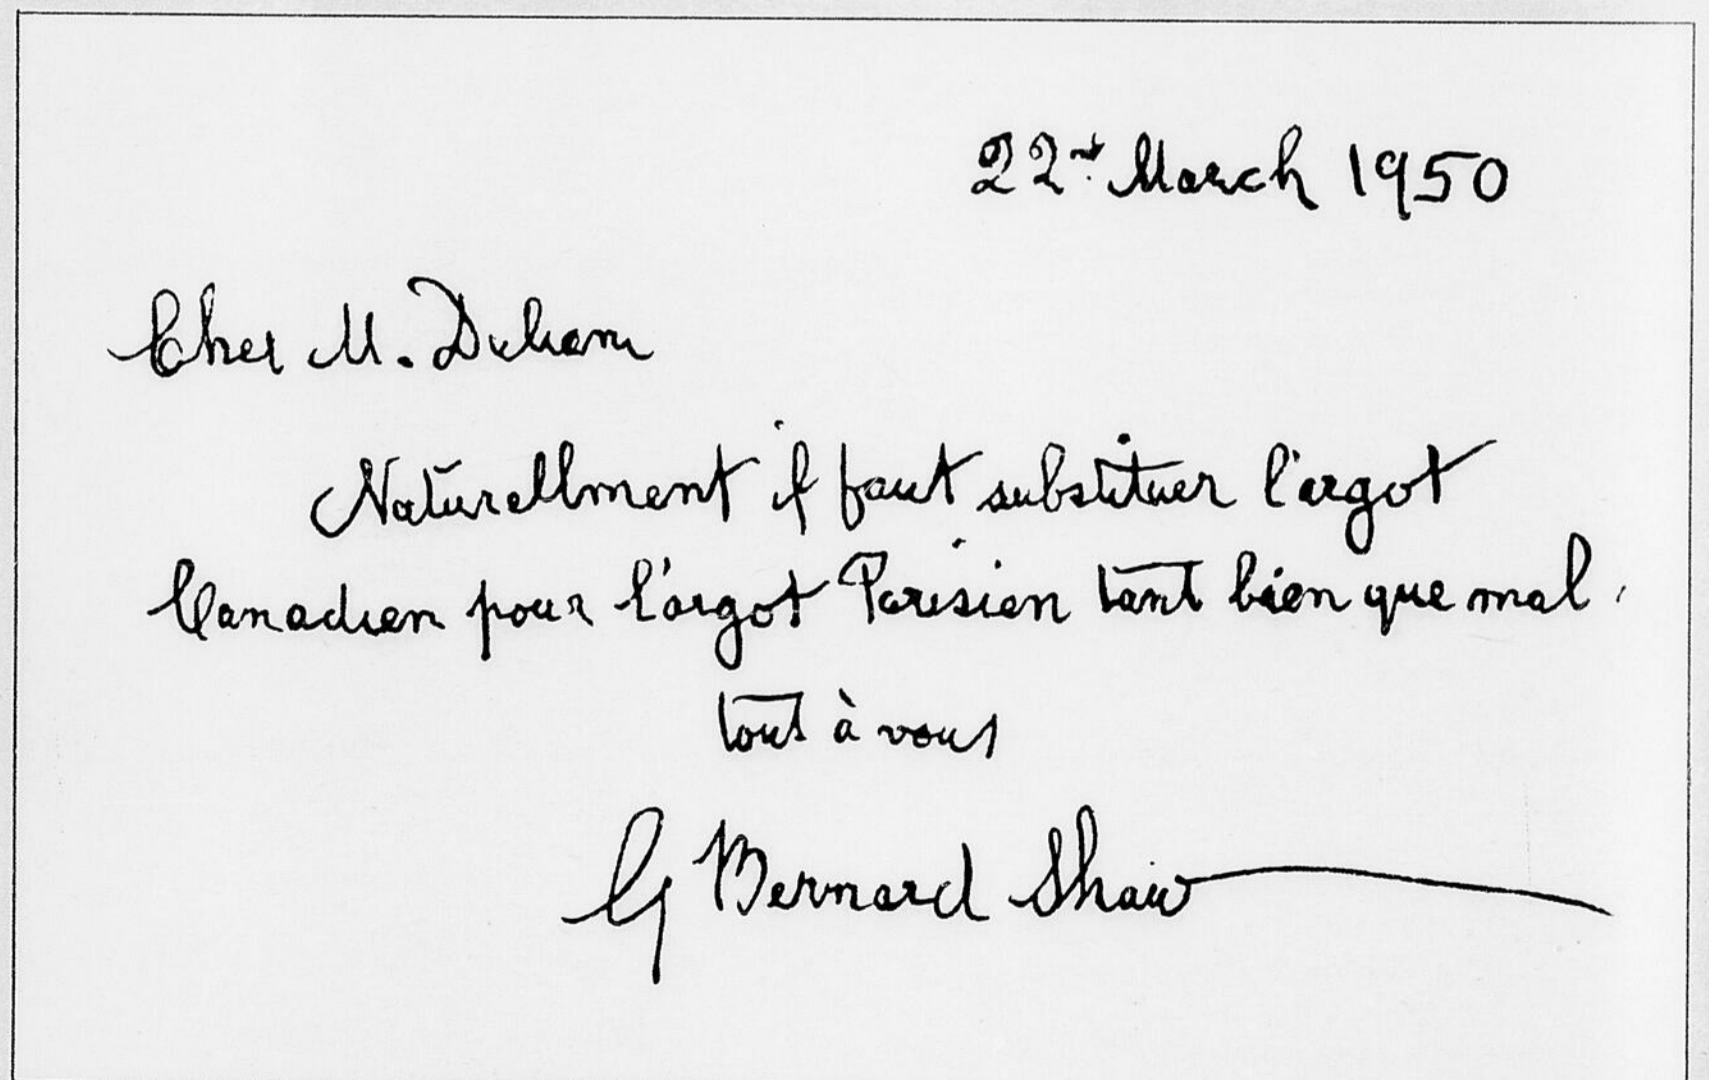 22nd March 1950
Cher M. Duliani
Naturellment il faut substituer l'argot
Canadien pour l'argot Parisien tant bien que mal.
tout à vous
G Bernard Shaw